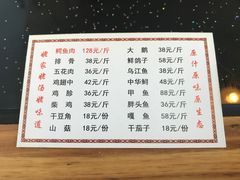 鳄鱼肉 128元/斤
排骨 38元/斤
五花肉 36元/斤
鸡翅中 42元/斤
鸡胗 36元/斤
柴鸡 38元/斤
干豆角 18元/份
山菇 18元/份
大鹅 38元/斤
鲜鸽子 58元/斤
乌江鱼 38元/斤
中华鲟 48元/斤
甲鱼 88元/斤
胖头鱼 36元/斤
嘎鱼 58元/斤
干茄子 18元/份
原汁原味原生态